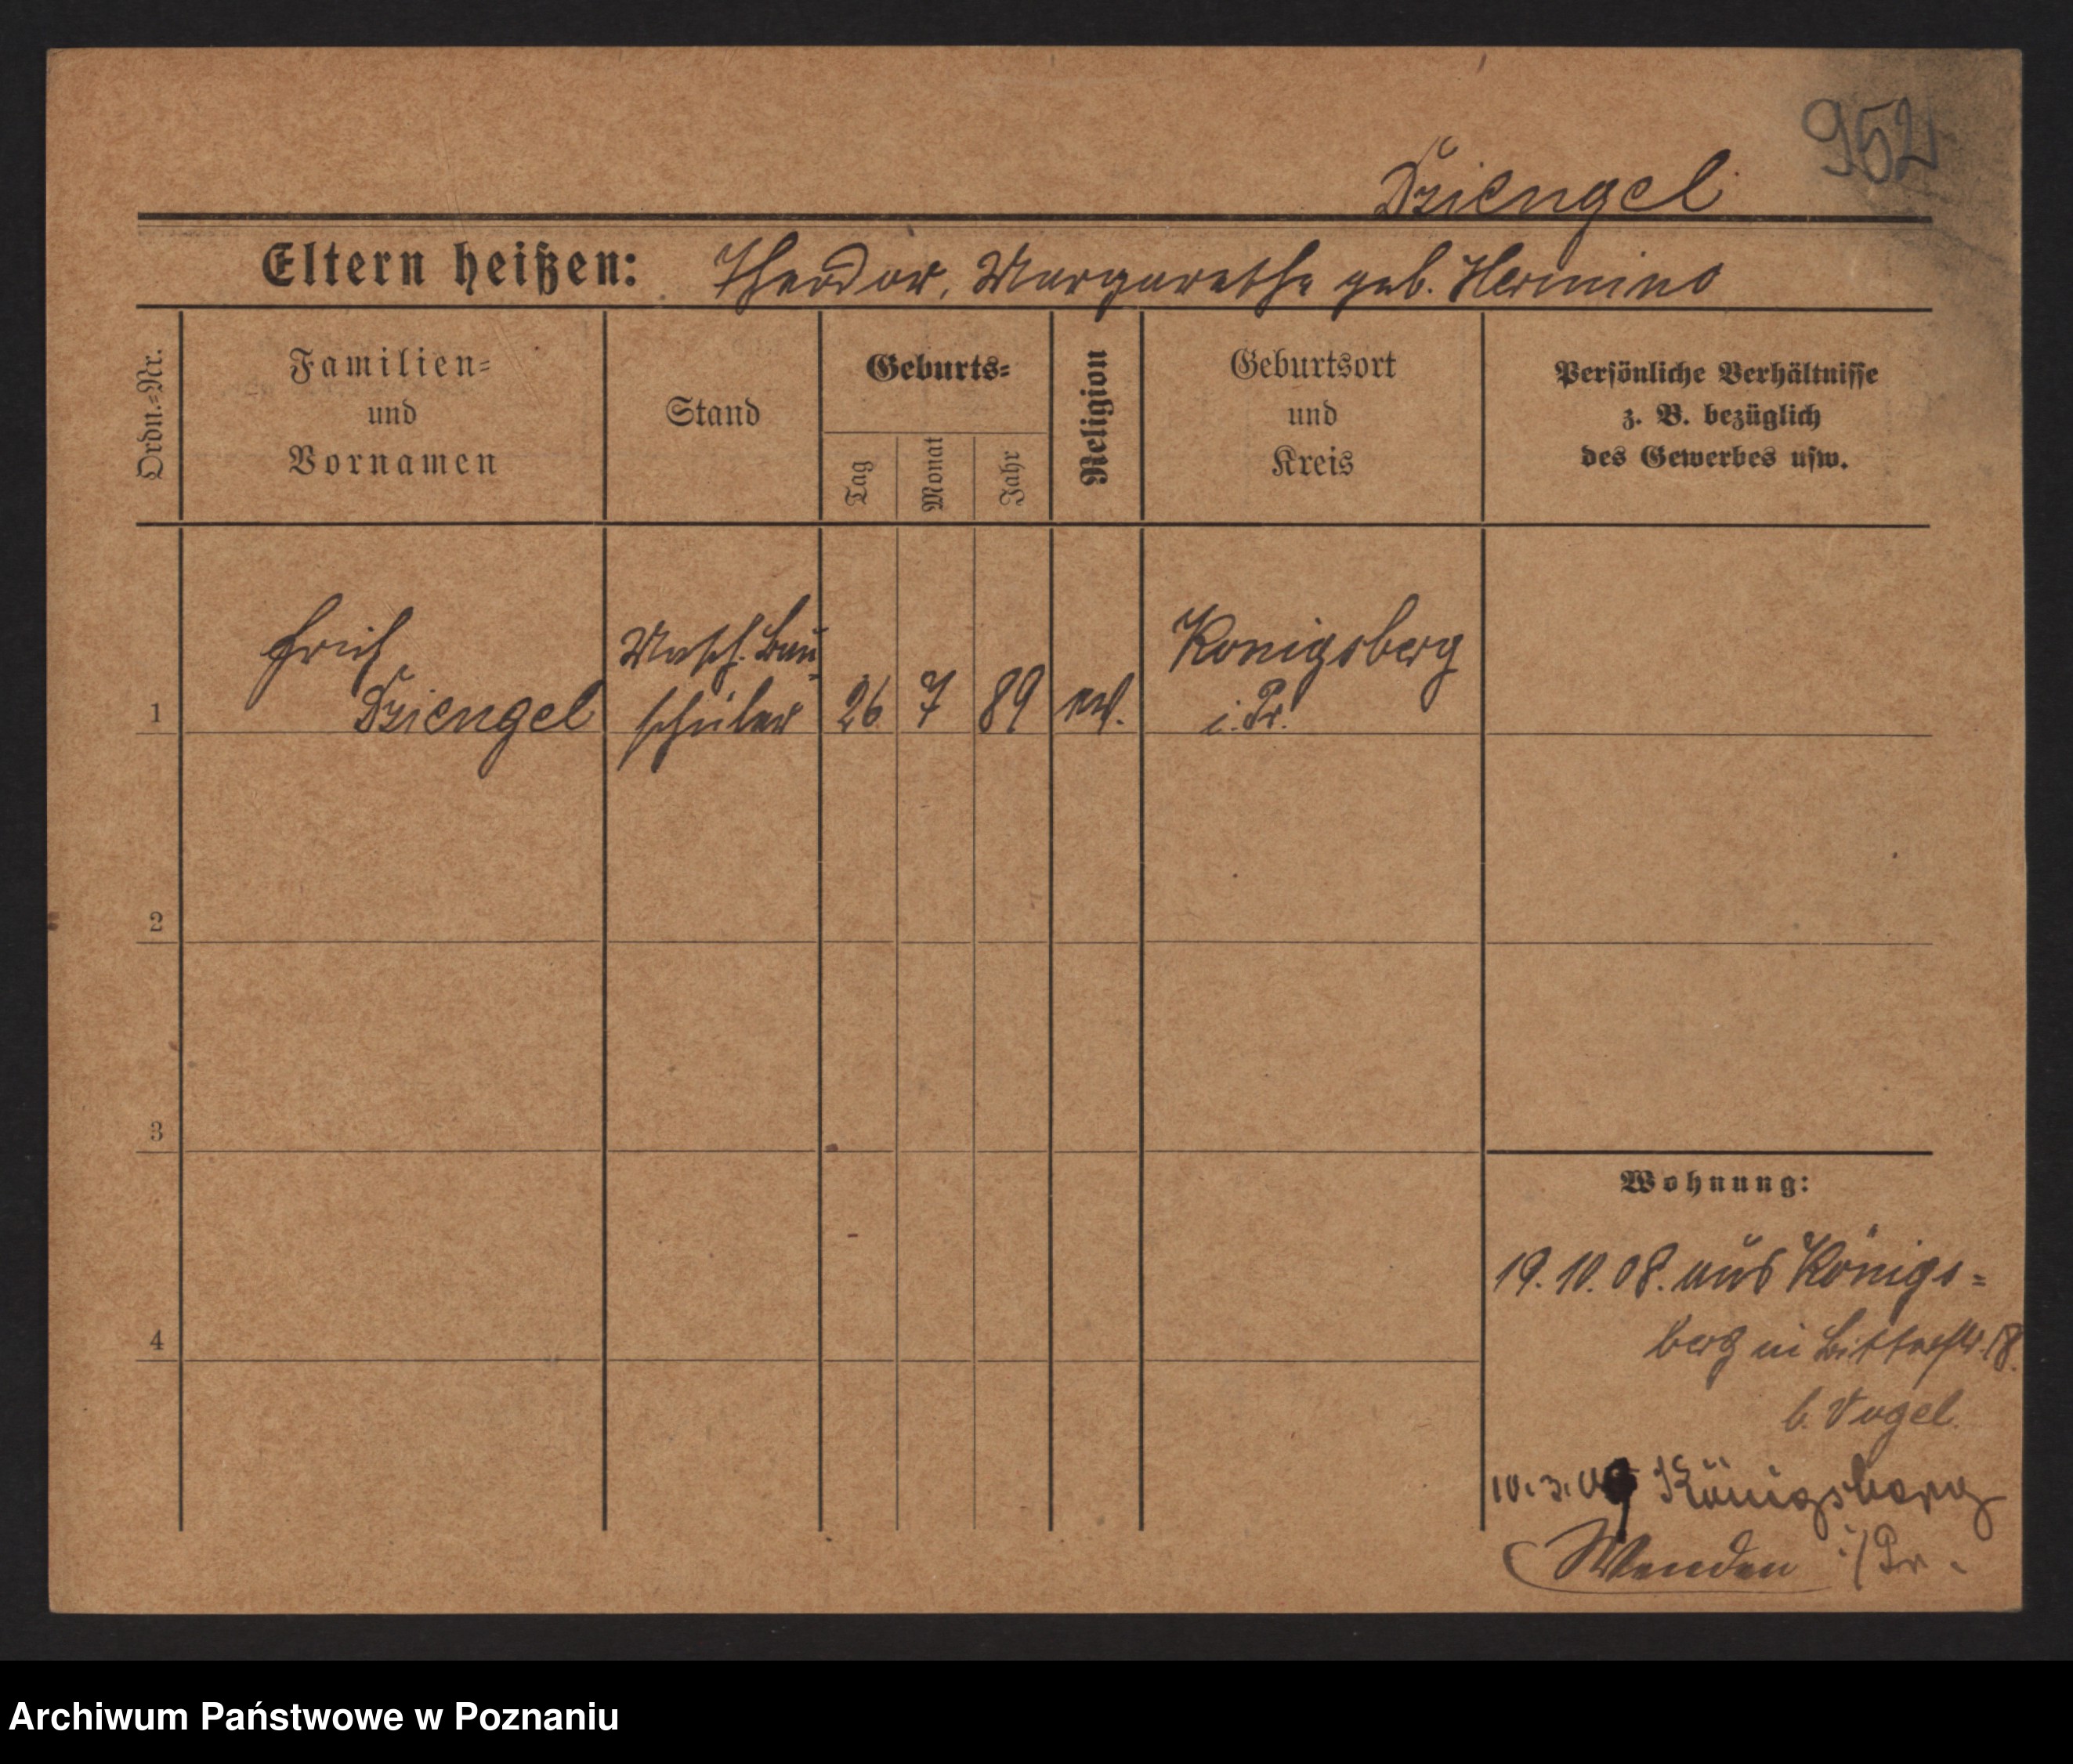 952
Dziengel
Eltern heißen: Theodor, Margarethe geb. Hermino
Ordn.-Nr.
Familien-
und
Vornamen
Stand
Geburts-
Tag
Monat
Jahr
Religion
Geburtsort
und
Kreis
Persönliche Verhältnisse
z. B. bezüglich
des Gewerbes usw.
Erich
Dziengel
Masch. Bau-
schüler
1
26 7 89 ev.
Königsberg
i. Pr.
2
3
4
Wohnung:
19. 10. 08. aus Königs-
berg in Bitterstr. 18.
b. Vogel.
10. 3. 09 Königsberg
i/Pr.
Wenden
Archiwum Państwowe w Poznaniu